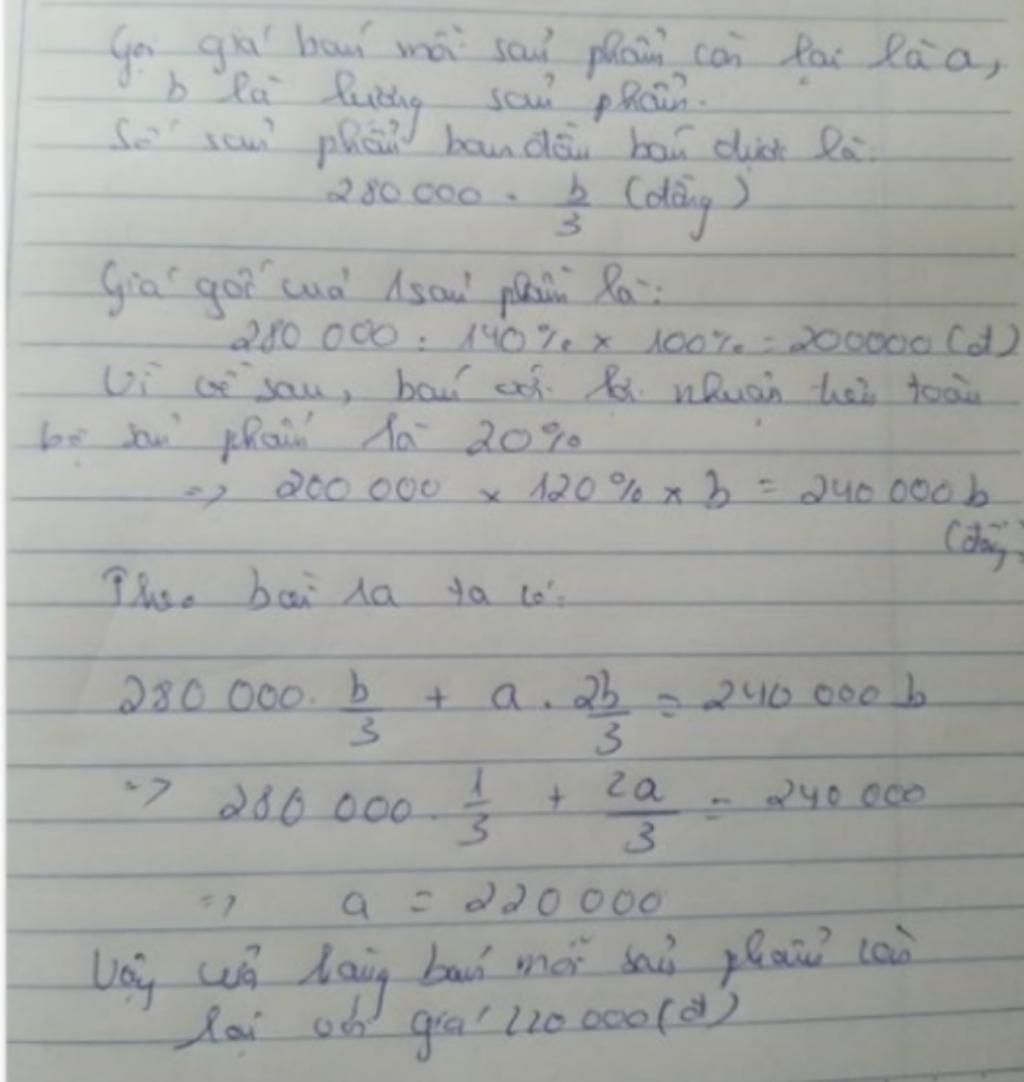 Gọi giá bán mỗi sản phẩm còn lại là a,
b là lượng sản phẩm.
Số sản phẩm ban đầu bán được là:
280 000 . b/3 (đồng)
Giá gốc của 1 sản phẩm là:
280 000 : 140% x 100% = 200000 (đ)
Vì về sau, bán với lợi nhuận trên toàn
bộ sản phẩm là 20%
=> 200 000 x 120% x b = 240 000 b
(đồng)
Theo bài ra ta có:
280 000. b/3 + a . 2b/3 = 240 000 b
=> 280 000 . 1/3 + 2a/3 = 240 000
=> a = 220 000
Vậy cửa hàng bán mỗi sản phẩm còn
lại với giá 220 000 (đ)